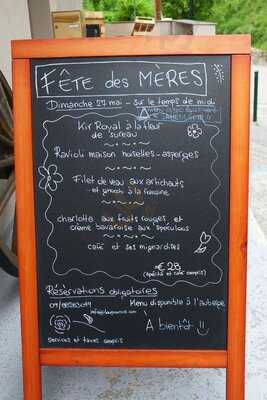 FÊTE des MÈRES
Dimanche 27 mai - sur le temps de midi
Kir Royal à la fleur
de sureau
Ravioli maison noisettes-asperges
Filet de veau aux artichauts
charlotte aux fruits rouges et
crème bavaroise aux spéculoos
café et ses mignardises
€ 28
(apéritif et café compris)
Réservations obligatoires
Menu disponible à l'auberge
A bientôt !!
services et taxes compris